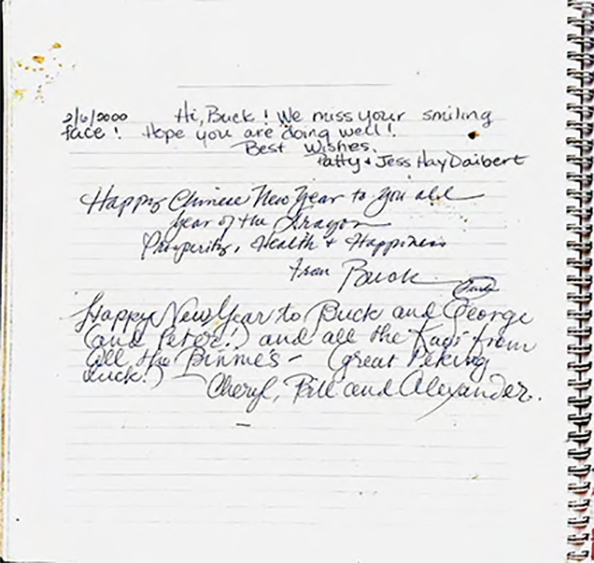 2/6/2000 Hi, Buck! We miss your smiling
face! Hope you are doing well!
Best Wishes,
Patty + Jess Hay Daibert
Happy Chinese New Year to you all
Year of the Dragon
Prosperity, Health + Happiness
from Buck
Happy New Year to Buck and George
(and Peter!) and all the Kays from
all the Binnie's – (great Peking
duck!) – Cheryl, Bill and Alexander.